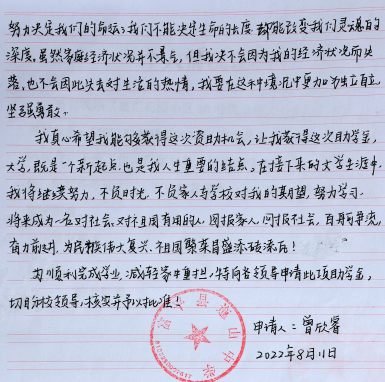 努力决定我们的命运；我们不能决定生命的长度，却能改变我们灵魂的
深度。虽然家庭经济状况并不景气，但我决不会因为我的经济状况而失
落，也不会因此失去对生活的热情，我要在这种境况中更加独立自立
坚强勇敢。
我真心希望我能够获得这次资助机会，让我获得这次助学金，
大学，既是一个新起点，也是我人生重要的结点，在接下来的大学生涯中，
我将继续努力，不负时光，不负家人与学校对我的期望，努力学习，
将来成为一名对社会、对祖国有用的人，回报家人，回报社会，百舸争流，
奋力前进，为民族伟大复兴、祖国繁荣昌盛添砖添瓦！
为顺利完成学业，减轻家中重担，特向各领导申请此项助学金，
切盼学校领导，核实并予以批准！
申请人：曾欣睿
2022年8月11日